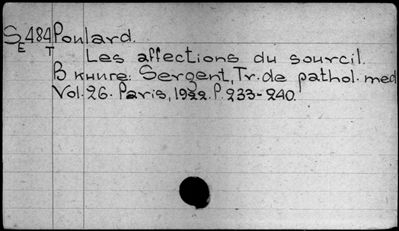 SE 484T Poulard.
Les affections du sourcil.
В книге: Sergent, Tr. de pathol. med
Vol. 26. Paris, 1922. P. 233-240.